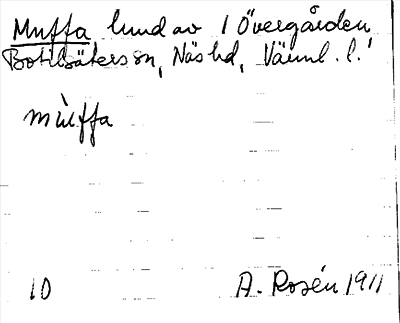 Muffa lund av 1 Övergården,
Botilsäters sn, Näs hd, Värml. l.
mùffa
10 A. Rosén 1911